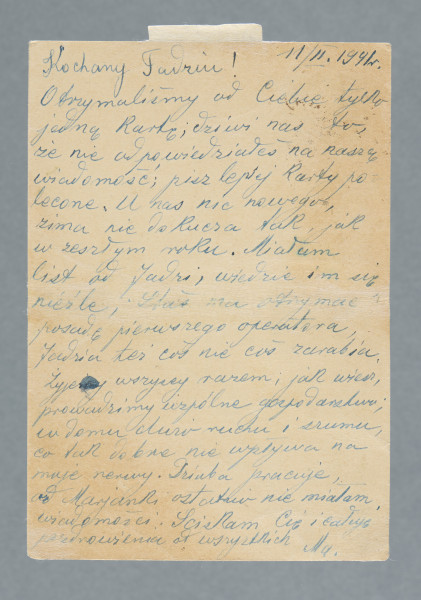 11/II. 1941r.
Kochany Tadziu!
Otrzymaliśmy od Ciebie tylko
jedną kartę; dziwi nas to,
że nie odpowiedziałeś na naszą
wiadomość; pisz lepiej karty po-
lecone. U nas nic nowego,
zima nie dokucza tak, jak
w zeszłym roku. Miałam
list od Jadzi, wiedzie im się
nieźle, Staś ma otrzymać
posadę pierwszego operatora,
Jadzia też coś nie coś zarabia.
Żyjemy wszyscy razem; jak wiesz,
prowadzimy wspólne gospodarstwo;
w domu dużo ruchu i szumu,
co tak dobrze nie wpływa na
moje nerwy. pracuje,
od Marjanki ostatnio nie miałam
wiadomości. Ściskam Cię i całuję
pozdrowienia od wszystkich